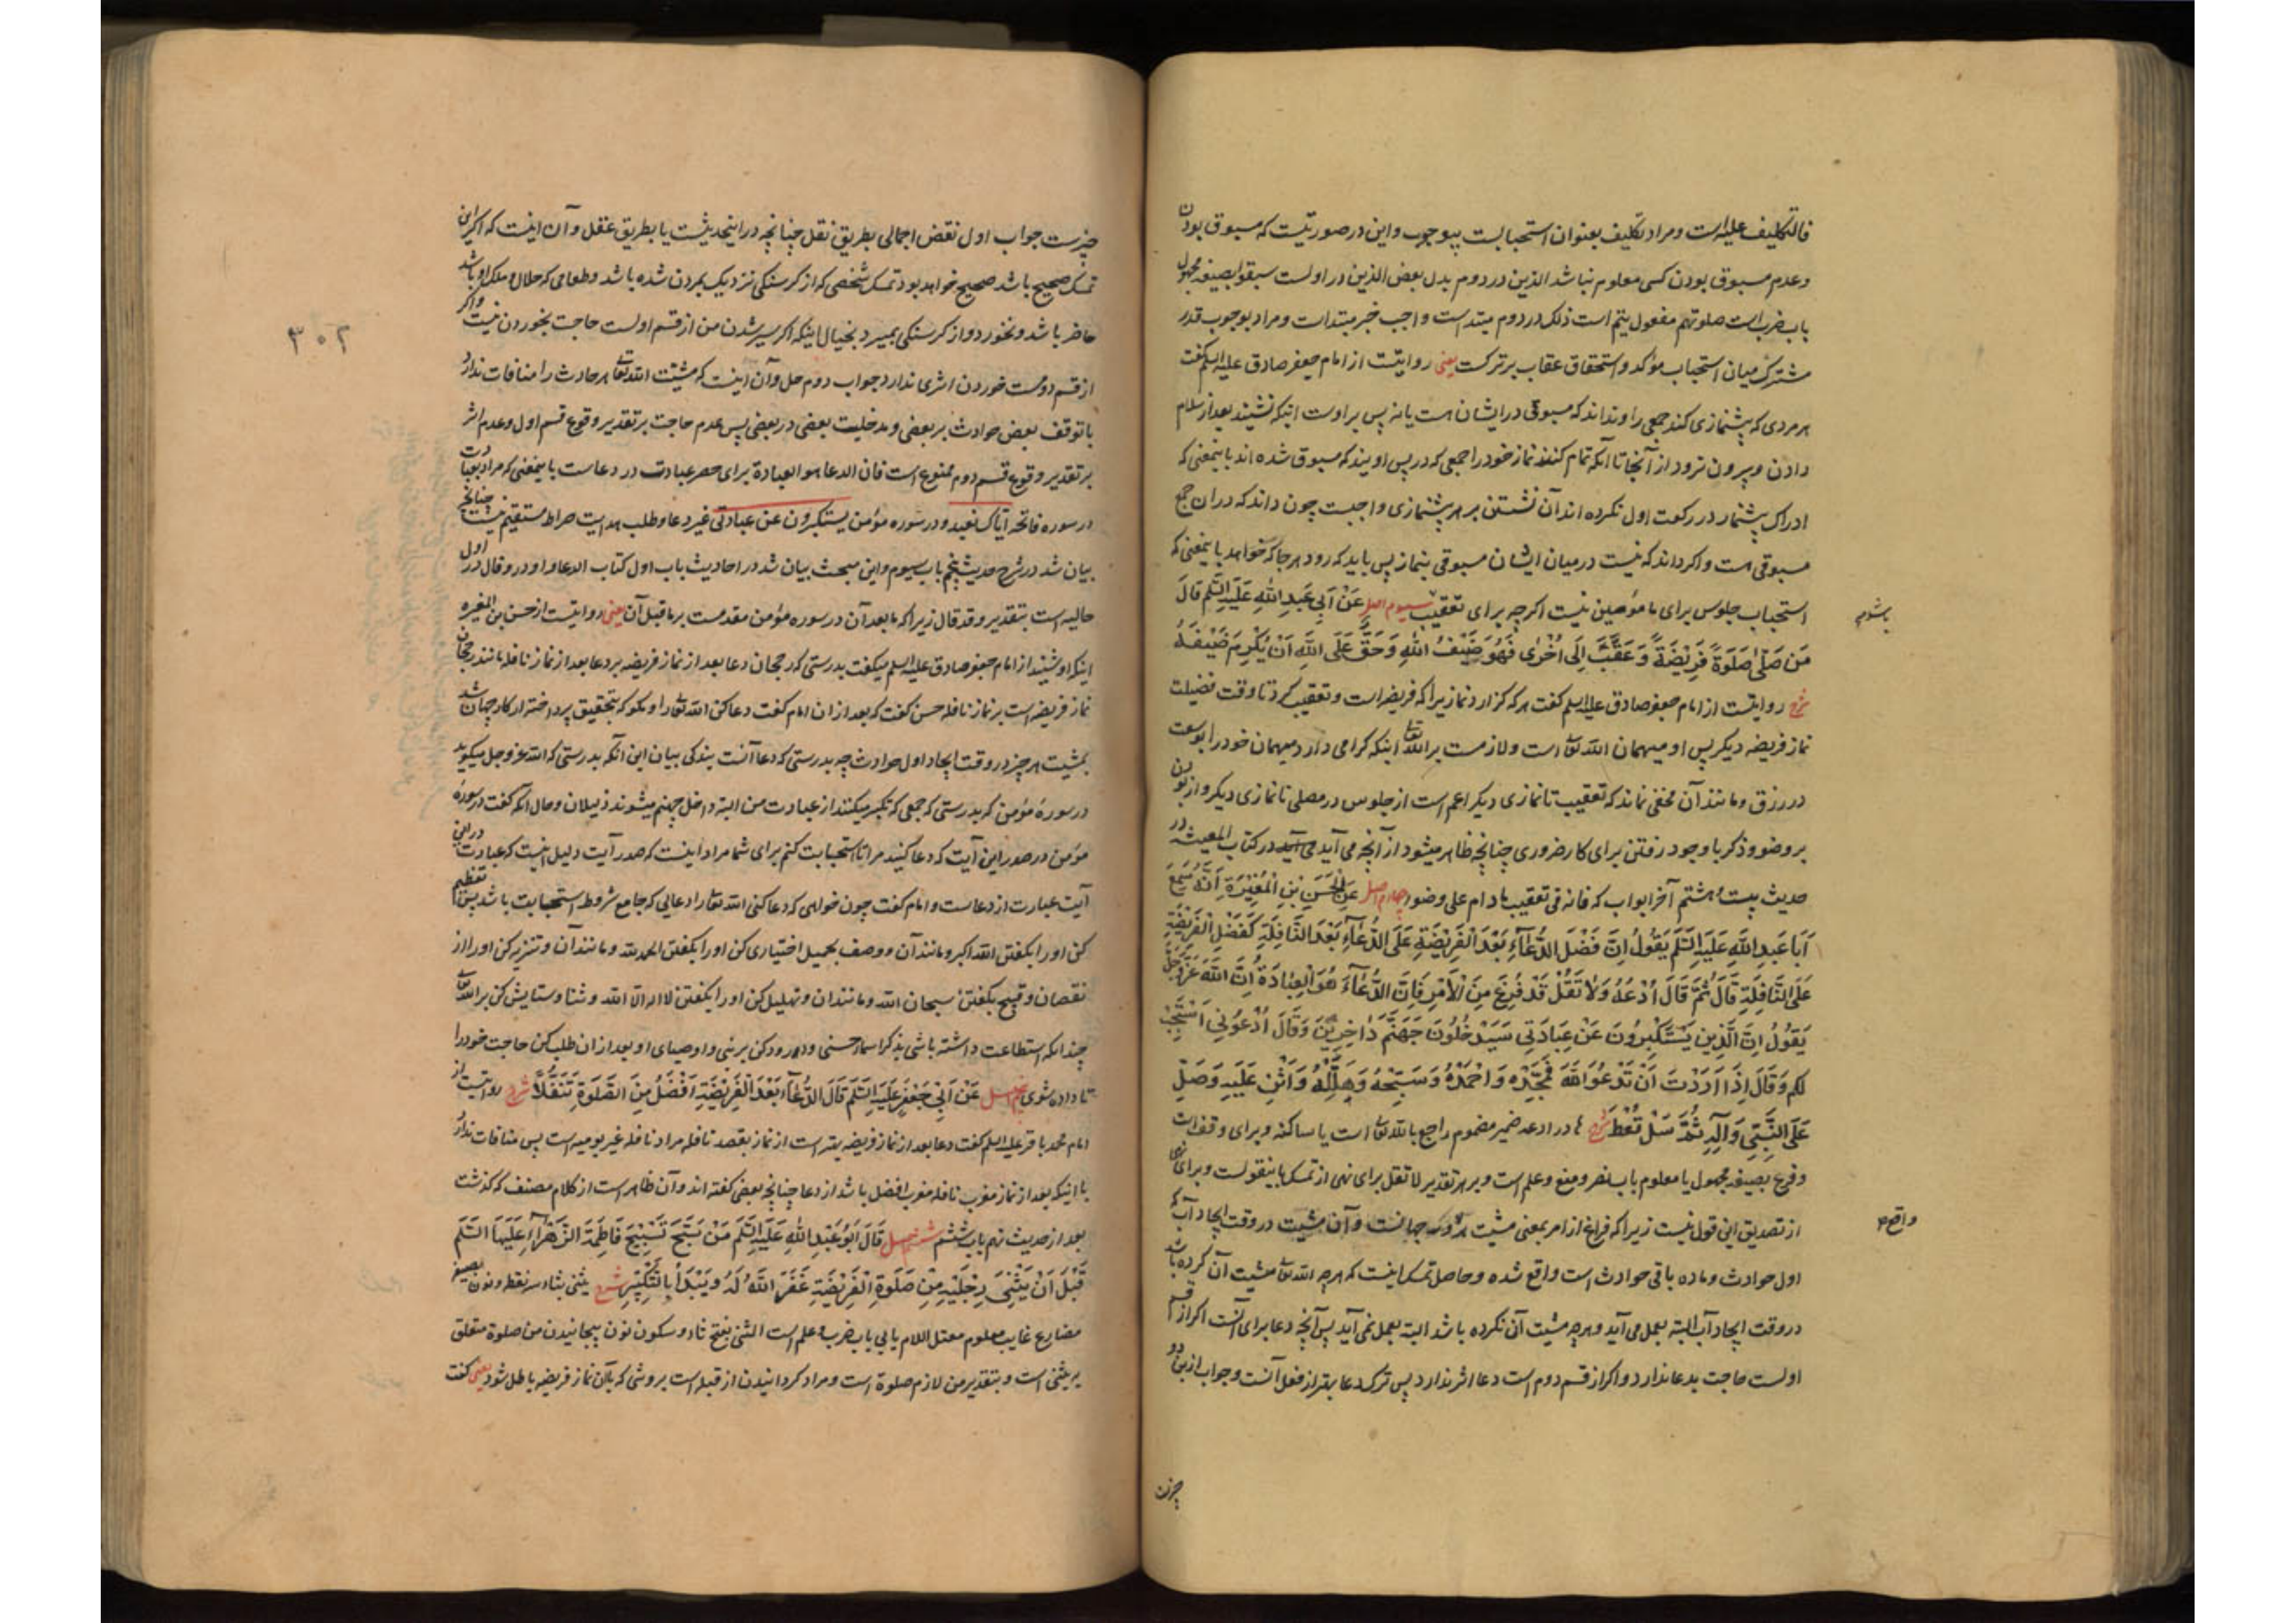 فالتکلیف علیه است ومراد تکلیف بعنوان استحبابست بیوجوب واین درصورتیست که مسبوق بودن
وعدم مسبوق بودن کسی معلوم نباشد الذین در دوم بدل بعض الذین در اولست سبقوا بصیغه مجهول
باب ضرب است صلوتهم مفعول یتم است ذلک در دوم مبتداست واجب خبر مبتداست ومراد بوجوب قدر
مشترک میان استحباب مؤکد واستحقاق عقاب بر ترکست یعنی روایتست از امام جعفر صادق علیه السلم گفت
هر مردی که پیشنمازی کند جمعی را و نداند که مسبوقی در ایشان هست یا نه پس بر اوست اینکه نشیند بعد از سلام
دادن و بیرون نرود از آنجا تا آنکه تمام کنند نماز خود را جمعی که در پس اویند که مسبوق شده اند باینمعنی که
ادراک پیشنماز در رکعت اول نکرده اند آن نشستن بر هر پیشنمازی واجبست چون داند که در ان جمع
مسبوقی هست واکر داند که نیست درمیان ایشان مسبوقی بنماز پس باید که رود هر جا که خواهد باینمعنی که
استحباب جلوس برای مامؤمین نیست اکرچه برای تعقیب سیوم اصل عَنْ اَبِي عَبدِ اللهِ عَلَيهِ السَّلم قالَ
مَن صَلّى صَلَوةً فَرِيْضَةً وَعَقَّبَ اِلَى اُخْرى فَهُوَ ضَيْفُ اللهِ وَحَقٌّ عَلَى اللهِ اَنْ يُكْرِمَ ضَيْفَهُ
شرح روایتست از امام جعفر صادق علیه السلم گفت هر که گزارد نماز یرا که فریضه است وتعقیب کرد تا وقت فضیلت
نماز فریضه دیکر پس او میهمان الله تعا است ولازمست بر الله تعا اینکه کرامی دارد میهمان خود را بوسعت
در رزق ومانند آن مخفی نماند که تعقیب تا نمازی دیکر اعم است از جلوس در مصلی تا نمازی دیکر و از بودن
بر وضو وذکر با وجود رفتن برای کار ضروری چنانچه ظاهر میشود از آنچه می آید در کتاب المعیشه در
حدیث بیست وهشتم آخر ابواب که فانه فی تعقیب مادام علی وضوء چهارم اصل عَنِ الْحَسَنِ بْنِ الْمُغِيْرَةِ اَنَّهُ سَمِعَ
اَبَا عَبدِ اللهِ عَلَيهِ السَّلم يَقُولُ اِنَّ فَضْلَ الدُّعَاءِ بَعْدَ الْفَرِيْضَةِ عَلَى الدُّعَاءِ بَعْدَ النَّافِلَةِ كَفَضْلِ الْفَرِيْضَةِ
عَلَى النَّافِلَةِ قَالَ ثُمَّ قَالَ اُدْعُهُ وَلَا تَقُلْ قَدْ فُرِغَ مِنَ الْاَمْرِ فَاِنَّ الدُّعَاءَ هُوَ الْعِبَادَةُ اِنَّ اللهَ عَزَّ وَجَلَّ
يَقُولُ اِنَّ الَّذِينَ يَسْتَكْبِرُونَ عَنْ عِبَادَتِي سَيَدْخُلُونَ جَهَنَّمَ دَاخِرِيْنَ وَقَالَ اُدْعُونِي اَسْتَجِبْ
لكم وَقَالَ اِذَا اَرَدْتَ اَنْ تَدْعُوَ اللهَ فَمَجِّدْهُ وَاحْمَدْهُ وَسَبِّحْهُ وَهَلِّلْهُ وَاثْنِ عَلَيهِ وَصَلِّ
عَلَى النَّبِيِّ وَآلِهِ ثُمَّ سَلْ تُعْطَ شرح ها در ادعه ضمیر مضموم راجع بالله تعا است یا ساکنه وبرای وقفست
وفرغ بصیغه مجهول یا معلوم باب نصر ومنع وعلم است وبر هر تقدیر لا تقل برای نهی از تمسک باینقولست وبرای نهی
از تصدیق این قول نیست زیرا که فراغ از امر بمعنی مشیت هر جهانست و آن مشیت در وقت ایجاد آب که
اول حوادث وماده باقی حوادث است واقع شده وحاصل تمسک اینست که هرچه الله تعا مشیت آن کرده باشد
در وقت ایجاد آب البته بعمل می آید وهرچه مشیت آن نکرده باشد البته بعمل نمی آید پس آنچه دعا برای آنست اکر از قسم
اولست حاجت بدعا ندارد واکر از قسم دوم است دعا اثر ندارد پس ترک دعا بهتر از فعل آنست وجواب ازین دو
واقع
چیزست
۳۰۲
چیزست جواب اول نقض اجمالی بطریق نقل چنانچه در اینحدیثست یا بطریق عقل وآن اینست که اکر این
تمسک صحیح باشد صحیح خواهد بود تمسک شخصی که از کرسنکی نزدیک بمردن شده باشد وطعامی که حلال وملک او باشد
حاضر باشد ونخورد واز کرسنکی بمیرد بخیال اینکه اکر سیر شدن من از قسم اولست حاجت بخوردن نیست واکر
از قسم دومست خوردن اثری ندارد جواب دوم حل وآن اینست که مشیت الله تعا هر حادث را منافات ندارد
با توقف بعض حوادث بر بعضی ومدخلیت بعضی در بعضی پس عدم حاجت بر تقدیر وقوع قسم اول وعدم اثر
بر تقدیر وقوع قسم دوم ممنوع است فان الدعا هو العبادة برای حصر عبادت در دعاست باینمعنی که مراد بعبادت
در سوره فاتحه ایاک نعبد ودر سوره مؤمن یستکبرون عن عبادتی غیر دعا وطلب هدایت صراط مستقیم نیست چنانچه
بیان شد در شرح حدیث پنجم باب سیوم واین مبحث بیان شد در احادیث باب اول کتاب الدعاء واو در وقال در اول
حالیه است بتقدیر وقد قال زیرا که مابعد آن در سوره مؤمن مقدمست بر ماقبل آن یعنی روایتست از حسن بن المغیره
اینکه او شنید از امام جعفر صادق علیه السلم میکفت بدرستی که رجحان دعا بعد از نماز فریضه بر دعا بعد از نماز نافله مانند رجحان
نماز فریضه است بر نماز نافله حسن گفت که بعد از ان امام گفت دعا کن الله تعا را ومکو که بتحقیق پرداخته از کار جهان شد
بمشیت هر چیز در وقت ایجاد اول حوادث چه بدرستی که دعا آنست بندکی بیان این آنکه بدرستی که الله عز وجل میکوید
در سورهٔ مؤمن که بدرستی که جمعی که تکبر میکنند از عبادت من البته داخل جهنم میشوند ذلیلان وحال آنکه گفت در سورهٔ
مؤمن در صدر این آیت که دعا کنید مرا تا استجابت کنم برای شما مراد اینست که صدر آیت دلیل اینست که عبادت در این
آیت عبارت از دعاست وامام گفت چون خواهی که دعا کنی الله تعا را دعایی که جامع شروط استجابت باشد پس تعظیم
کن او را بکفتن الله اکبر ومانند آن ووصف بجمیل اختیاری کن او را بکفتن الحمد لله ومانند آن وتنزیه کن او را از
نقصان وقبیح بکفتن سبحان الله ومانند ان وتهلیل کن او را بکفتن لا اله الا الله وثنا وستایش کن بر الله تعا
چندانکه استطاعت داشته باشی بذکر اسماء حسنی ودرود کن بر نبی واوصیای او بعد از ان طلب کن حاجت خود را
تا داده شوی پنجم اصل عَنْ اَبِي جَعْفَرٍ عَلَيهِ السَّلم قَالَ الدُّعَاءُ بَعْدَ الْفَرِيْضَةِ اَفْضَلُ مِنَ الصَّلَوةِ تَنَفُّلًا شرح روایتست از
امام محمد باقر علیه السلم گفت دعا بعد از نماز فریضه بهتر است از نماز بقصد نافله مراد نافله غیر یومیه است پس منافات ندارد
با اینکه بعد از نماز مغرب نافله مغرب افضل باشد از دعا چنانچه بعضی گفته اند وآن ظاهر است از کلام مصنف که گذشت
بعد از حدیث نهم باب ششم ششم اصل قَالَ اَبُو عَبدِ اللهِ عَلَيهِ السَّلم مَنْ سَبَّحَ تَسْبِيْحَ فَاطِمَةَ الزَّهْرَاءِ عَلَيهَا السَّلَم
قَبْلَ اَنْ يَثْنِيَ رِجْلَيْهِ مِنْ صَلَوةِ الْفَرِيْضَةِ غَفَرَ اللهُ لَهُ وَيَبْدَأُ بِالتَّكْبِيْرِ شرح یثنی بثاء سه نقطه ونون بصیغه
مضارع غایب معلوم معتل اللام یایی باب ضرب وعلم است الثنی بفتح ثاء وسکون نون پیچانیدن من صلوة متعلق
بر یثنی است وبتقدیر من لازم صلوة است ومراد کردانیدن از قبله است بروشی که بآن نماز فریضه باطل شود یعنی گفت